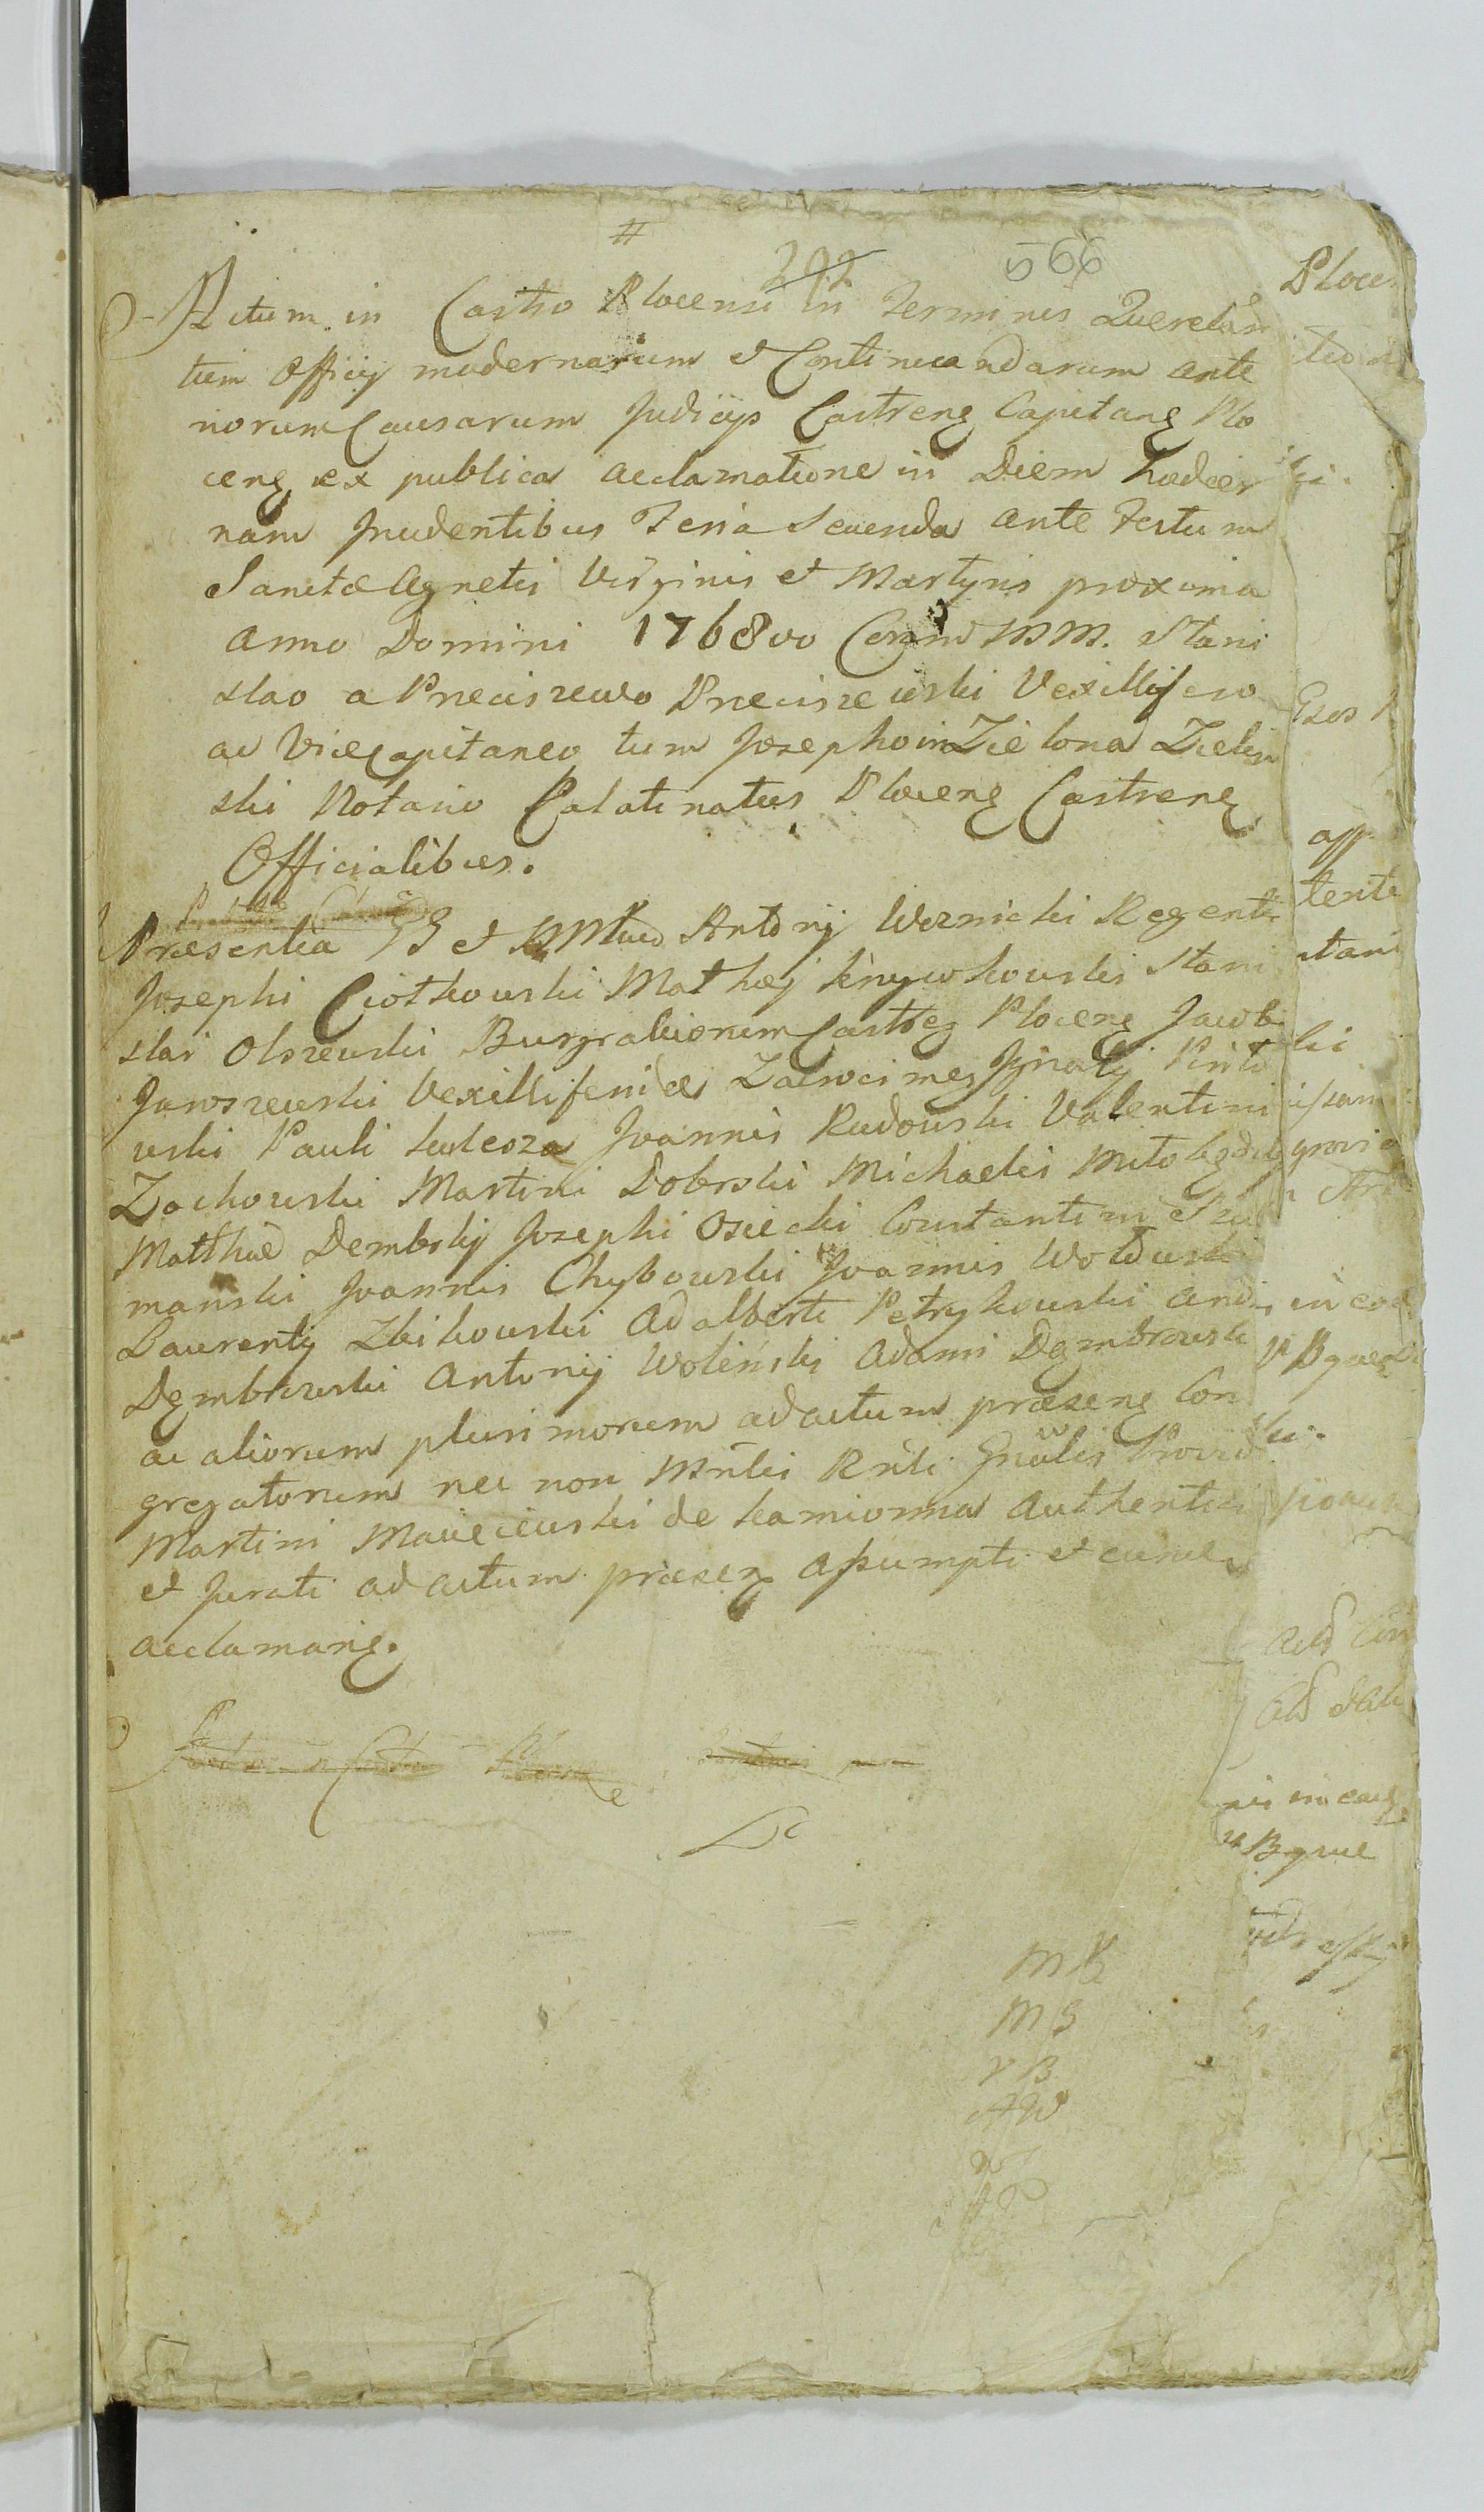 #
292 566
Actum in Castro Plocensi in Terminis Querelar
tum Officij modernarum et Continuandarum ante
riorum Causarum Judicijs Castreng Capitang Plo
ceng ex publica acclamatione in Diem hodier
nam Incidentibus Feria Secunda ante Festum
Sanctæ Agnetis Virginis et Martyris proxima
Anno Domini 1768vo Coram MM. Stani
slao a Preciszewo Preciszewski Vexillifero
ac Vicecapitaneo tum Josepho in Zielona Zielin
ski Notario Palatinatus Ploceng Castreng
Officialibus.
Præsentia GG et Antonij Woznicki Regentis
Josephi Ciotkowski Mathæj Krzywkowski Stani
slai Olszewski Burgrabiorum Castreg Ploceng Jacobi
Jaroszewski Vexilliferidæ Zakrocimeg Ignatij
wski Pauli Kulesza Joannis Rudowski Valentini
Zochowski Martini Dobrski Michaelis
Matthæi Dembskij Josephi Osiecki Constantini Szy
manski Joannis Chybowski Joannis Woldwski
Laurentij Zbikowski Adalberti Petrykowski And
Dembrowski Antonij Wolinski Adami Dembrowski
ac aliorum plurimorum ad actum præseng Con
gregatorum nec non Mnlis Rnli Gnalis Provid
Martini Macieiewski de Kamionna Authentici
et Jurati ad actum præseng assumpti et eum
acclamang.
MK
MS
VB
AW
Ploce
tente
stani
in eos
ski.